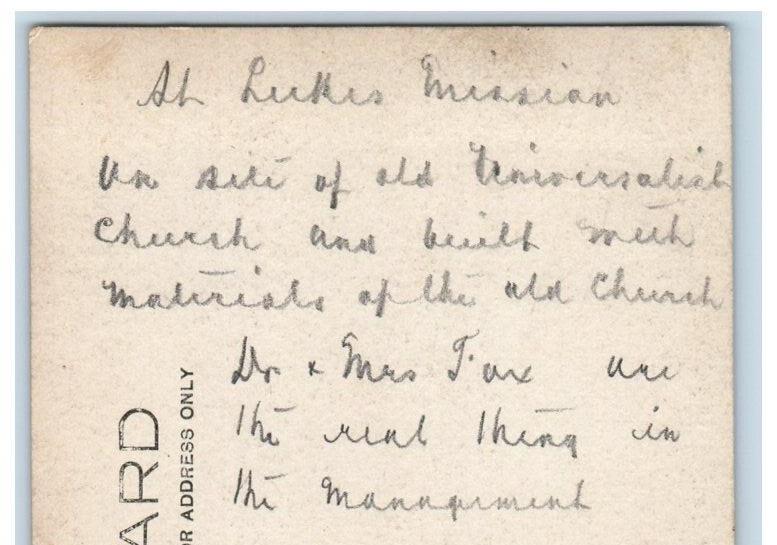 St Lukes Mission
On site of old Universalist
Church and built with
Materials of the old Church
Dr & Mrs Fox are
the real thing in
the Management
ARD
OR ADDRESS ONLY